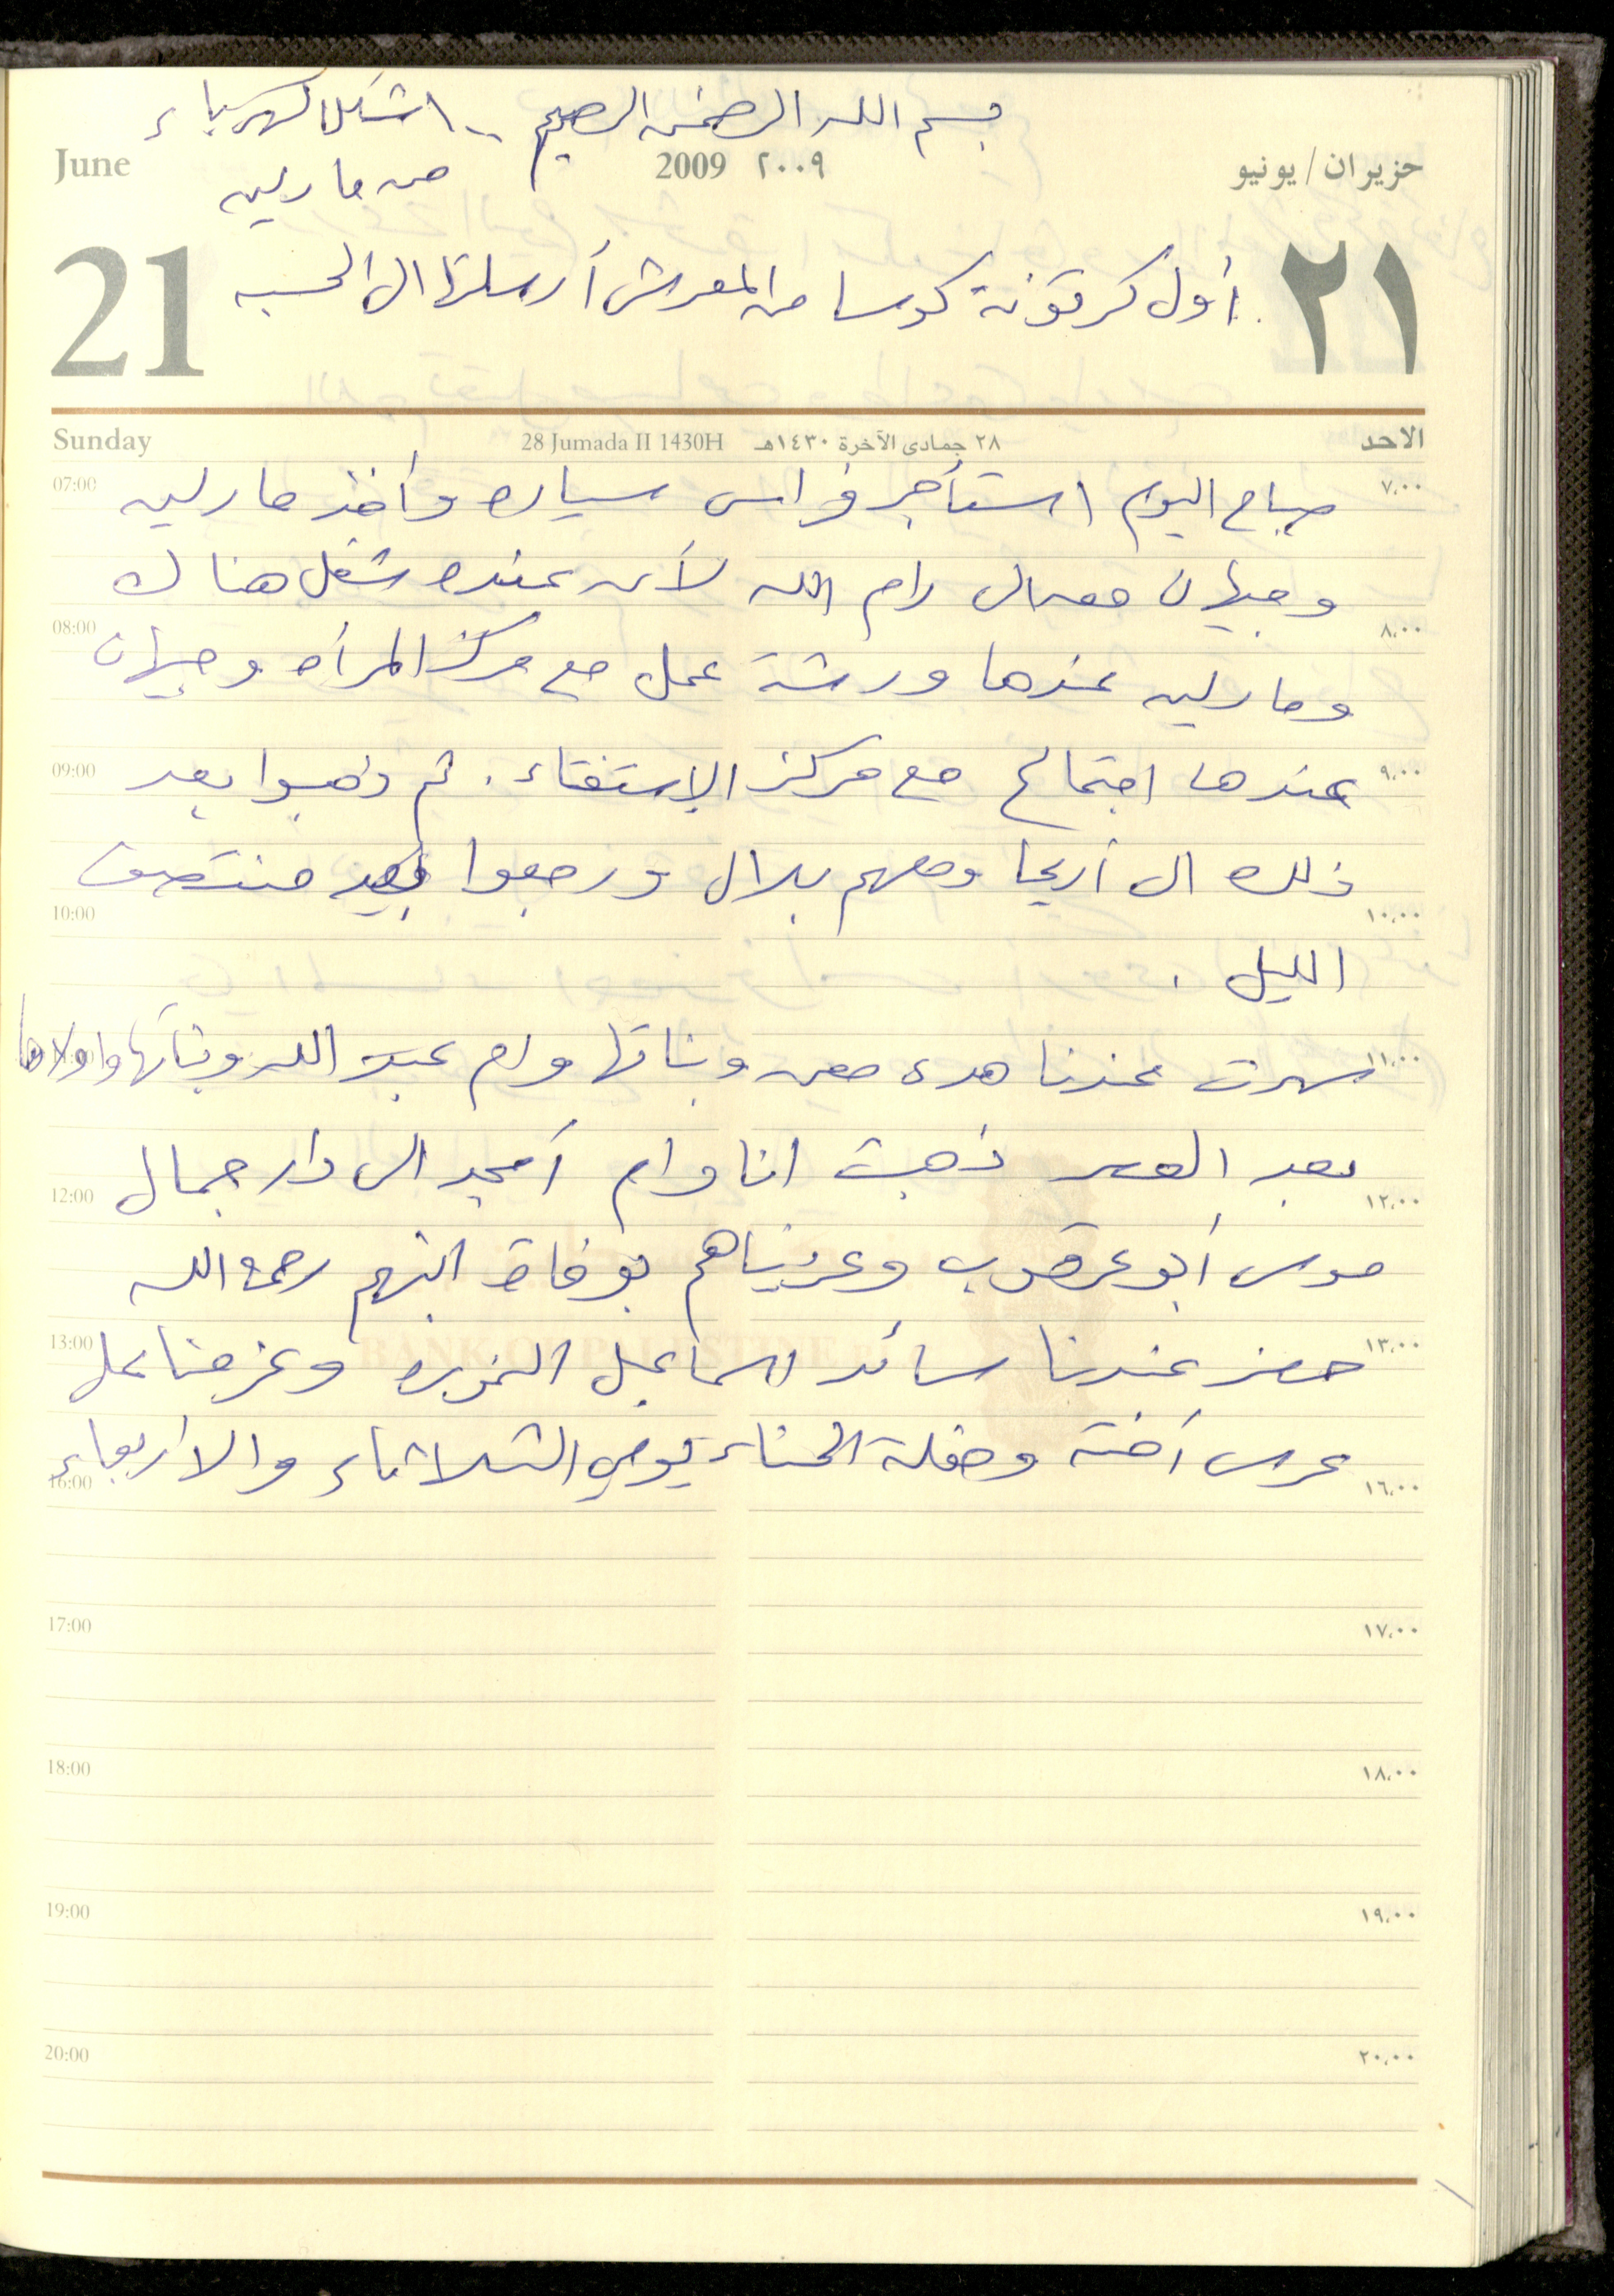 بسم الله الرحمن الرحيم .. اشكال كهرباء
June 2009 ٢٠٠٩ حزيران / يونيو
من مارلين
21 ٢١
أول كرتونة كوسا من المعرش أرسلتها الى الحسبه
Sunday 28 Jumada II 1430H ٢٨ جمادى الآخرة ١٤٣٠هـ الاحد
07:00 ٧,٠٠
صباح اليوم استأجر فراس سياره وأخذ مارلين
وجيهان معه الى رام الله لأن عنده شغل هناك
08:00 ٨,٠٠
ومارلين عندها ورشة عمل مع مركز المرأه وجيهان
09:00 ٩,٠٠
عندها اجتماع مع مركز الإستفتاء . ثم ذهبوا بعد
ذلك الى أريحا ومعهم بلال ورجعوا بعد منتصف
10:00 ١٠,٠٠
الليل .
١١,٠٠
سهرت عندنا هدى معين وبناتها وام عبد الله وبناتها واولادها
بعد العصر ذهبت انا وام أمجد الى دار جمال
12:00 ١٢,٠٠
موسى أبو عرقوب وعزيناهم بوفاة ابنهم رحمه الله
13:00 BANK OF PALESTINE ١٣,٠٠
حضر عندنا سائد اسماعيل وعزمنا على
عرس أخته وحفلة الحناء يومي الثلاثاء والاربعاء
16:00 ١٦,٠٠
17:00 ١٧,٠٠
18:00 ١٨,٠٠
19:00 ١٩,٠٠
20:00 ٢٠,٠٠